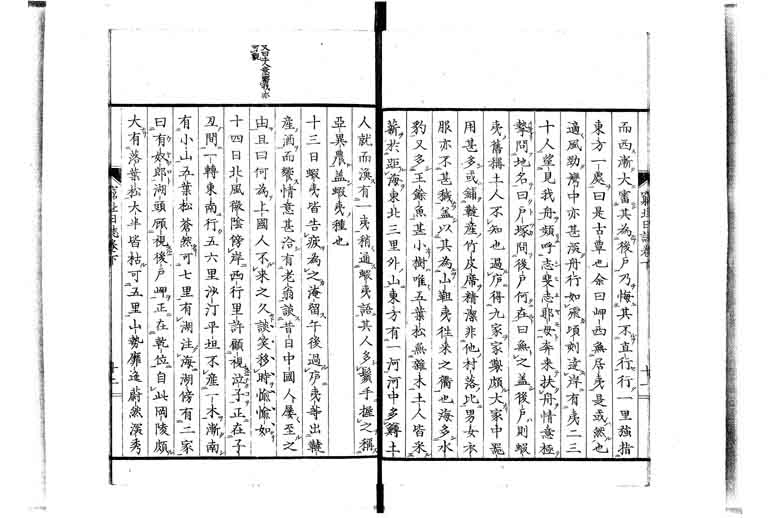 而西漸大審其為後戸乃悔其不直行行一里強指
東方一處曰是古章也余曰岬西無居夷是或然也
適風勁灣中亦甚浪舟行如飛頃刻達岸有夷二三
十人望見我舟頻呼志斐志耶女奔来扶舟情意極
摯問地名曰戸塚問後戸何在曰無之蓋後戸則蝦
夷舊稱土人不知也過戸得九家家製頗大家中器
用甚多或鋪韃産竹皮席精潔非他村落比男女衣
服亦不甚穢蓋以其為山靼夷往来之衢也海多水
豹又多王餘魚甚小樹唯五葉松無雑木土人皆米
薪於距海東北三里外山東方有一河河中多鱘土
人就而漁有一夷稍通蝦夷語其人多鬚手摭之稱
亞異農蓋蝦夷種也
十三日蝦夷皆告疾為之淹留午後過戸夷等出韃
産酒而饗情意甚洽有老翁談昔日中國人屢至之
由且曰何為上國人不来之久談笑移時愉愉如
十四日北風微陰傍岸西行里許顧視泣子正在子
丑間一轉東南行五六里沙汀平坦不産一木漸南
有小山五葉松蒼然可七里有湖注海湖傍有二家
曰有奴郎湖頭顧視後戸岬正在乾位自此岡陵頗
大有落葉松大半皆枯可五里山勢靡迤蔚然深秀
窮北日誌巻下
十二